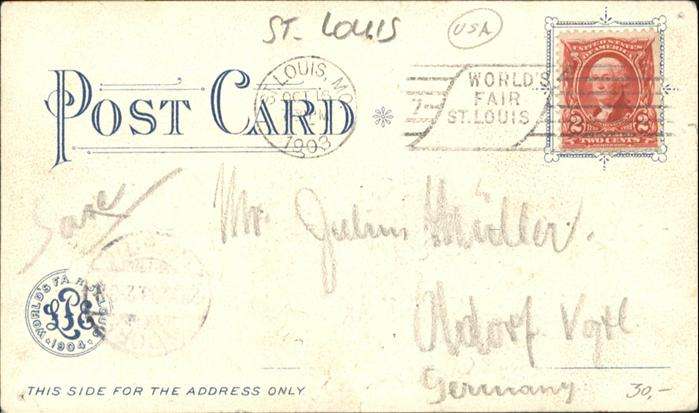 ST. LOUIS USA
POST CARD
ST. LOUIS, MO.
OCT
1903
7
WORLD'S
FAIR
ST. LOUIS
UNITED STATES
OF AMERICA
2 2
TWO CENTS
Saxe
Mr. Julius Müller.
Adorf Vgtl
Germany
WORLD'S FAIR ST. LOUIS
1904
THIS SIDE FOR THE ADDRESS ONLY
30,-